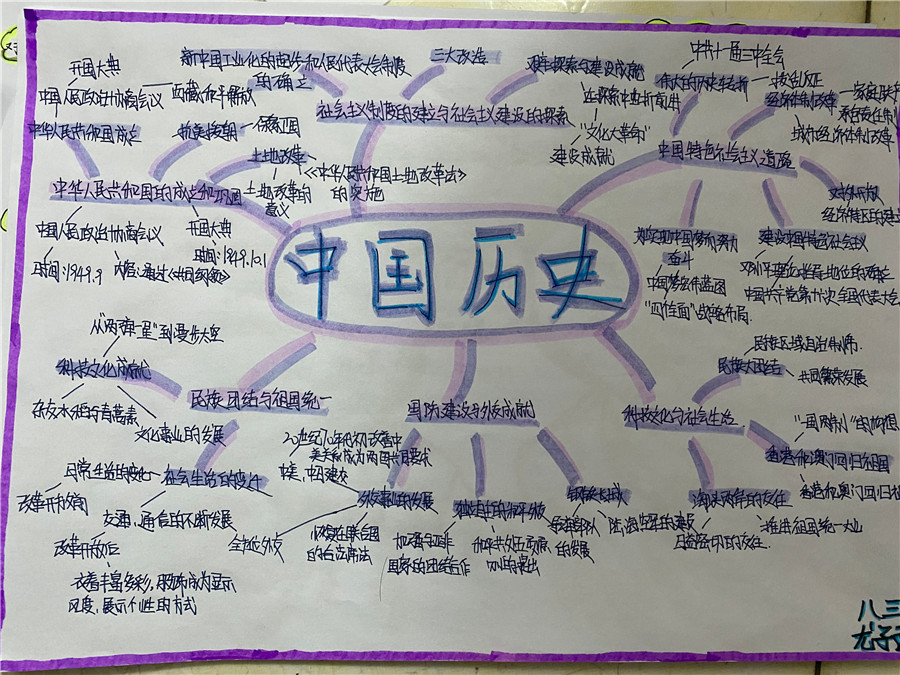 中国历史
中华人民共和国的成立和巩固
开国大典
中国人民政治协商会议
西藏和平解放
中华人民共和国成立
抗美援朝
保家卫国
土地改革
《中华人民共和国土地改革法》
的实施
土地改革的
意义
中国人民政治协商会议
时间:1949.9
内容:通过《共同纲领》
开国大典
时间:1949.10.1
社会主义制度的建立与社会主义建设的探索
新中国工业化的起步和人民代表大会制度
的确立
三大改造
艰辛探索与建设成就
在探索中曲折前进
"文化大革命"
建设成就
中国特色社会主义道路
伟大的历史转折
中共十一届三中全会
拨乱反正
经济体制改革
城市经济体制改革
对外开放
建设中国特色社会主义
邓小平理论指导地位的确定
中国共产党第十九次全国代表大会
为实现中国梦而努力
奋斗
中国梦宏伟蓝图
"四个全面"战略布局
民族团结与祖国统一
科技文化成就
从"两弹一星"到漫步太空
杂交水稻与青蒿素
文化事业的发展
社会生活的变迁
日常生活的变化
改革开放前
交通、通信的不断发展
改革开放后
衣着丰富多彩,服饰成为显示
风度、展示个性的方式
国防建设与外交成就
外交事业的发展
20世纪70年代初改善中
美关系成为两国共同要求
中美、中日建交
全方位外交
恢复在联合国
的合法席位
独立自主的和平外交
加强与亚非
国家的团结合作
和平共处五项原
则的提出
钢铁长城
的发展
陆、海、空军的建设
科技文化与社会生活
民族大团结
民族区域自治制度
共同繁荣发展
香港和澳门回归祖国
"一国两制"的构想
海峡两岸的交往
日益密切的交往
推进祖国统一大业
八三